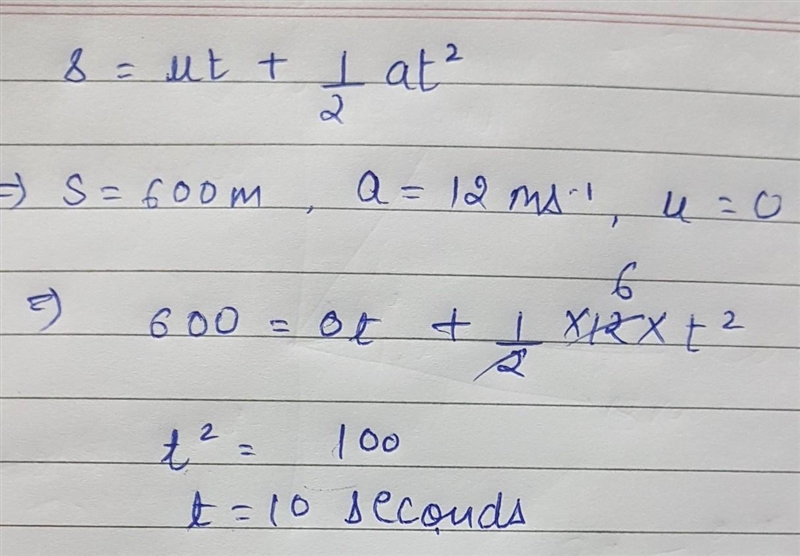 s = ut + 1/2 at²
⇒ S = 600m , a = 12 ms⁻¹, u = 0
⇒ 600 = 0t + 1/2 × 12 × t² 6
t² = 100
t = 10 seconds